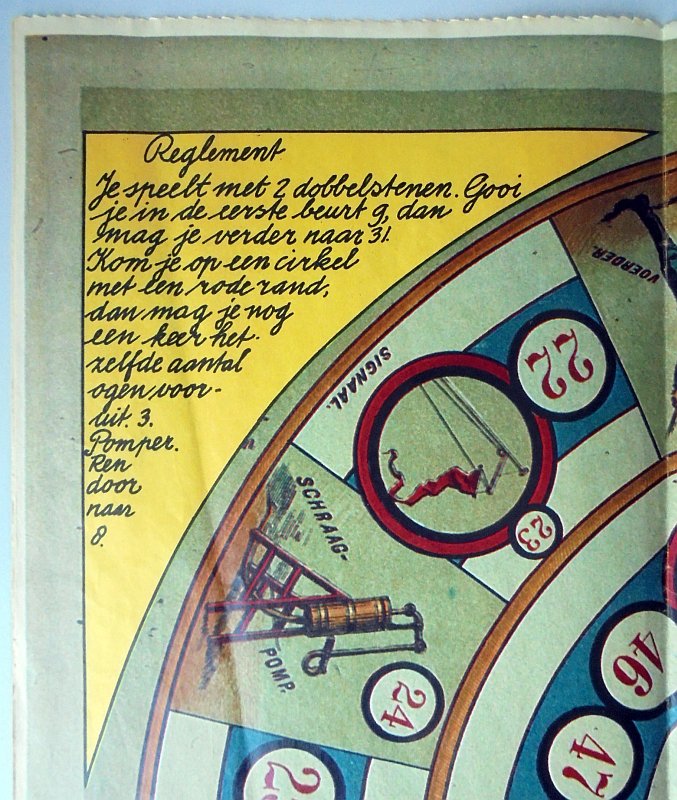 Reglement
Je speelt met 2 dobbelstenen. Gooi
je in de eerste beurt 9, dan
mag je verder naar 31.
Kom je op een cirkel
met een rode rand,
dan mag je nog
een keer het-
zelfde aantal
ogen voor-
uit. 3.
Pomper.
Ren
door
naar
8.
VOERDER.
22
SIGNAAL.
23
SCHRAAG-
POMP.
24
46
47